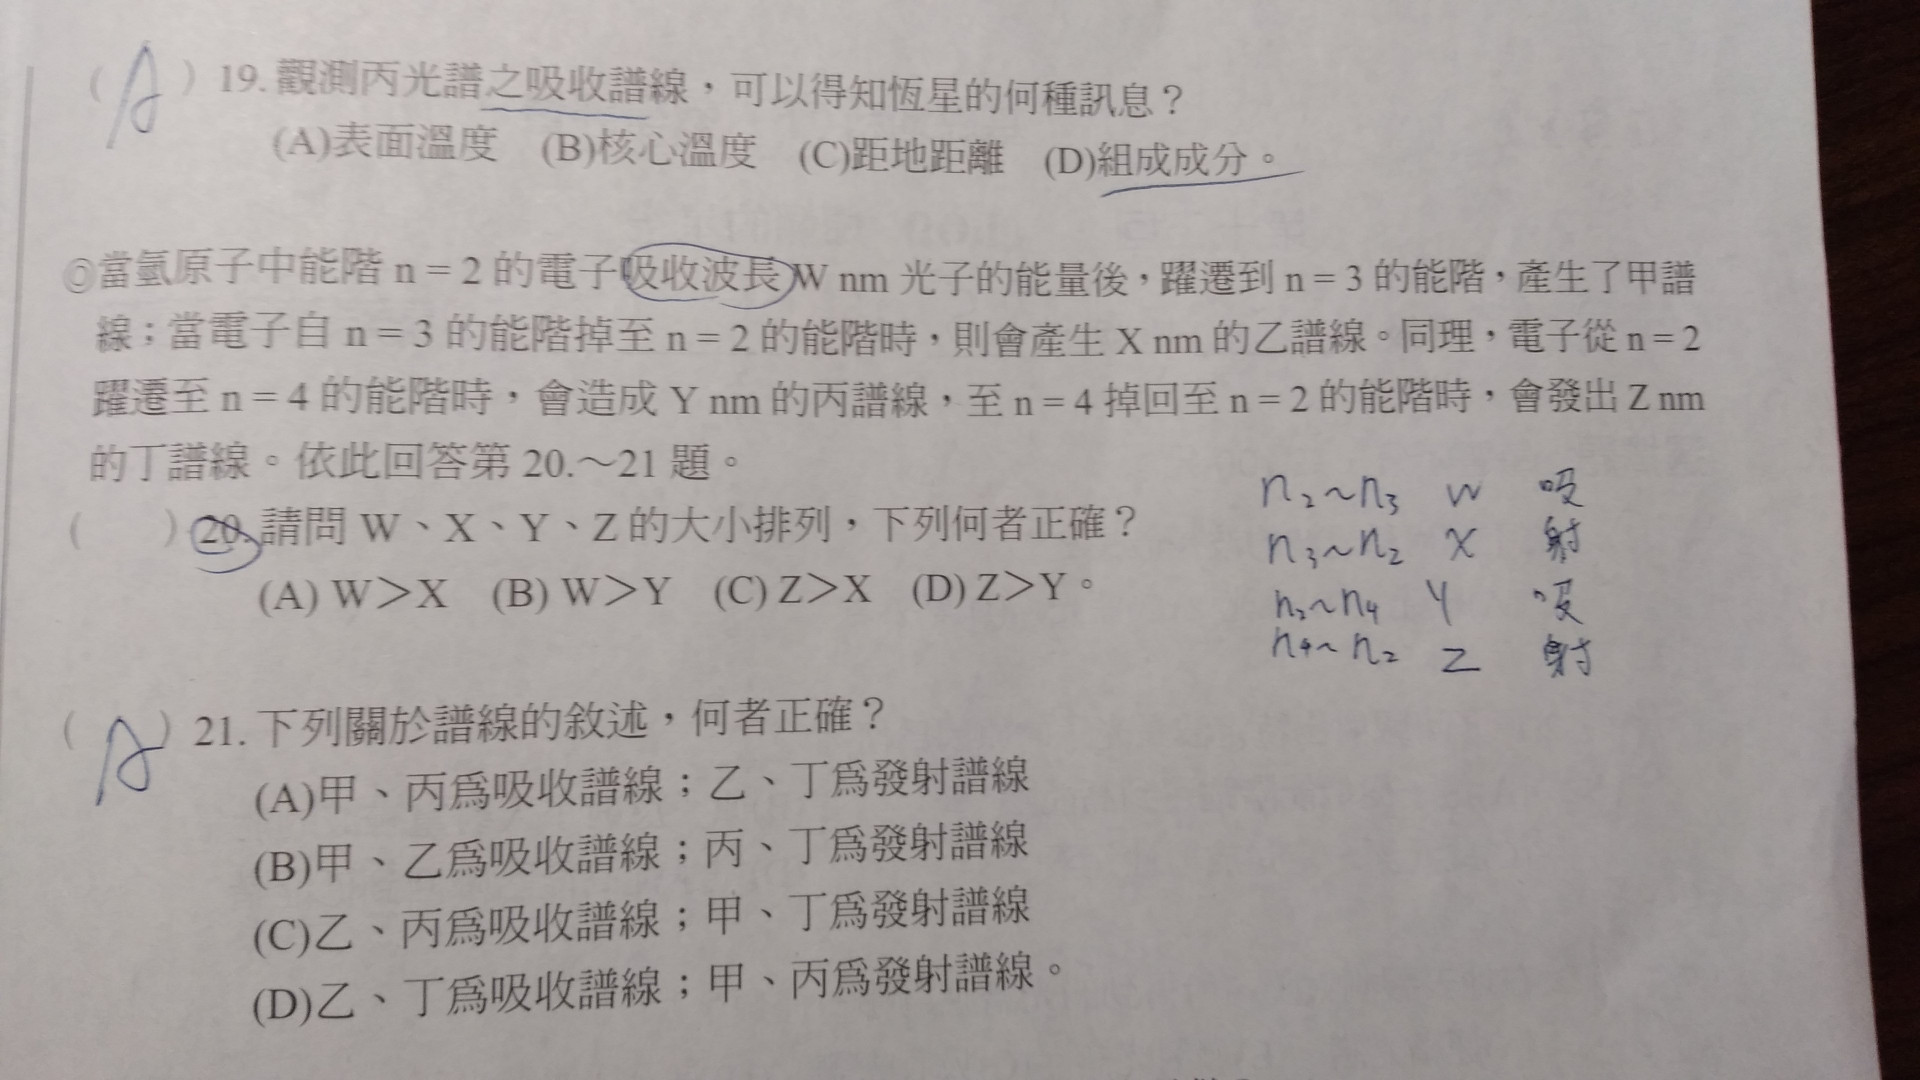 ( A ) 19. 觀測丙光譜之吸收譜線，可以得知恆星的何種訊息？
(A)表面溫度 (B)核心溫度 (C)距地距離 (D)組成成分。
◎當氫原子中能階 n = 2 的電子吸收波長 W nm 光子的能量後，躍遷到 n = 3 的能階，產生了甲譜
線；當電子自 n = 3 的能階掉至 n = 2 的能階時，則會產生 X nm 的乙譜線。同理，電子從 n = 2
躍遷至 n = 4 的能階時，會造成 Y nm 的丙譜線，至 n = 4 掉回至 n = 2 的能階時，會發出 Z nm
的丁譜線。依此回答第 20.～21 題。
n₂~n₃ W 吸
( ) 20. 請問 W、X、Y、Z 的大小排列，下列何者正確？
n₃~n₂ X 射
(A) W＞X (B) W＞Y (C) Z＞X (D) Z＞Y。
n₂~n₄ Y 吸
n₄~n₂ Z 射
( A ) 21. 下列關於譜線的敘述，何者正確？
(A)甲、丙為吸收譜線；乙、丁為發射譜線
(B)甲、乙為吸收譜線；丙、丁為發射譜線
(C)乙、丙為吸收譜線；甲、丁為發射譜線
(D)乙、丁為吸收譜線；甲、丙為發射譜線。